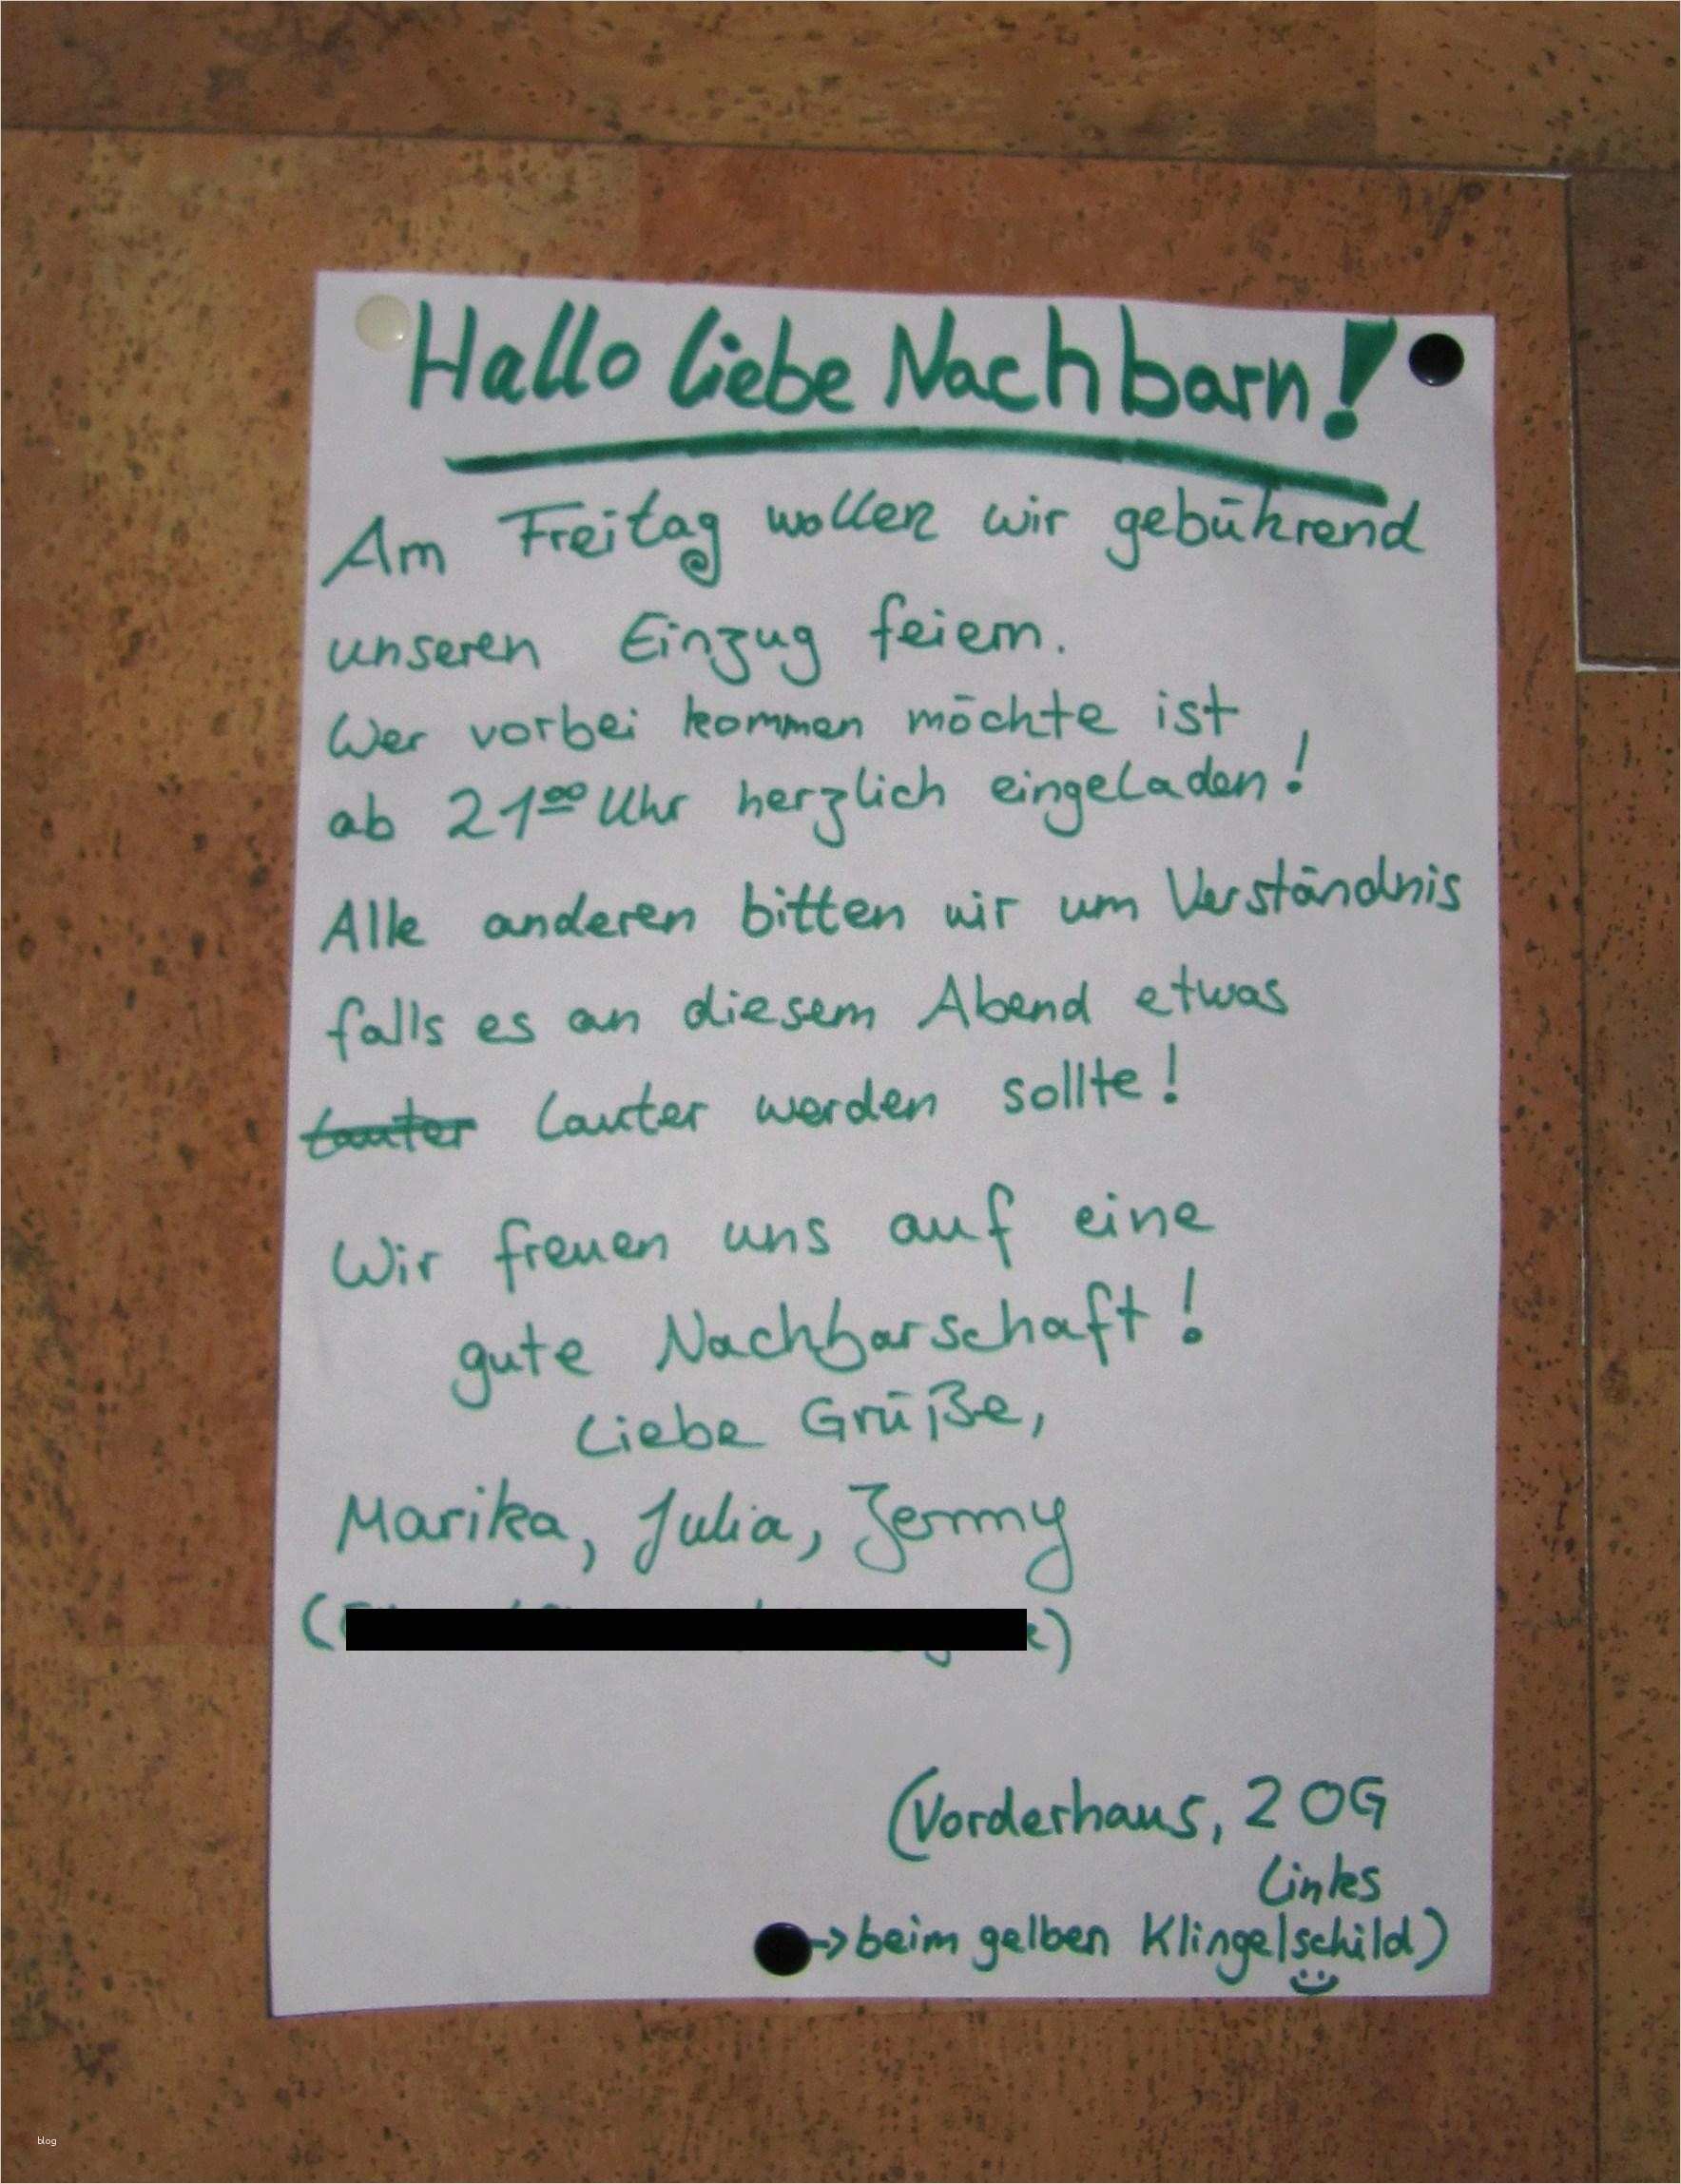 Hallo liebe Nachbarn!
Am Freitag wollen wir gebührend
unseren Einzug feiern.
Wer vorbei kommen möchte ist
ab 21⁰⁰ Uhr herzlich eingeladen!
Alle anderen bitten wir um Verständnis
falls es an diesem Abend etwas
lauter lauter werden sollte!
Wir freuen uns auf eine
gute Nachbarschaft!
Liebe Grüße,
Marika, Julia, Jenny
(Vorderhaus, 2 OG
Links
→ beim gelben Klingelschild)
blog